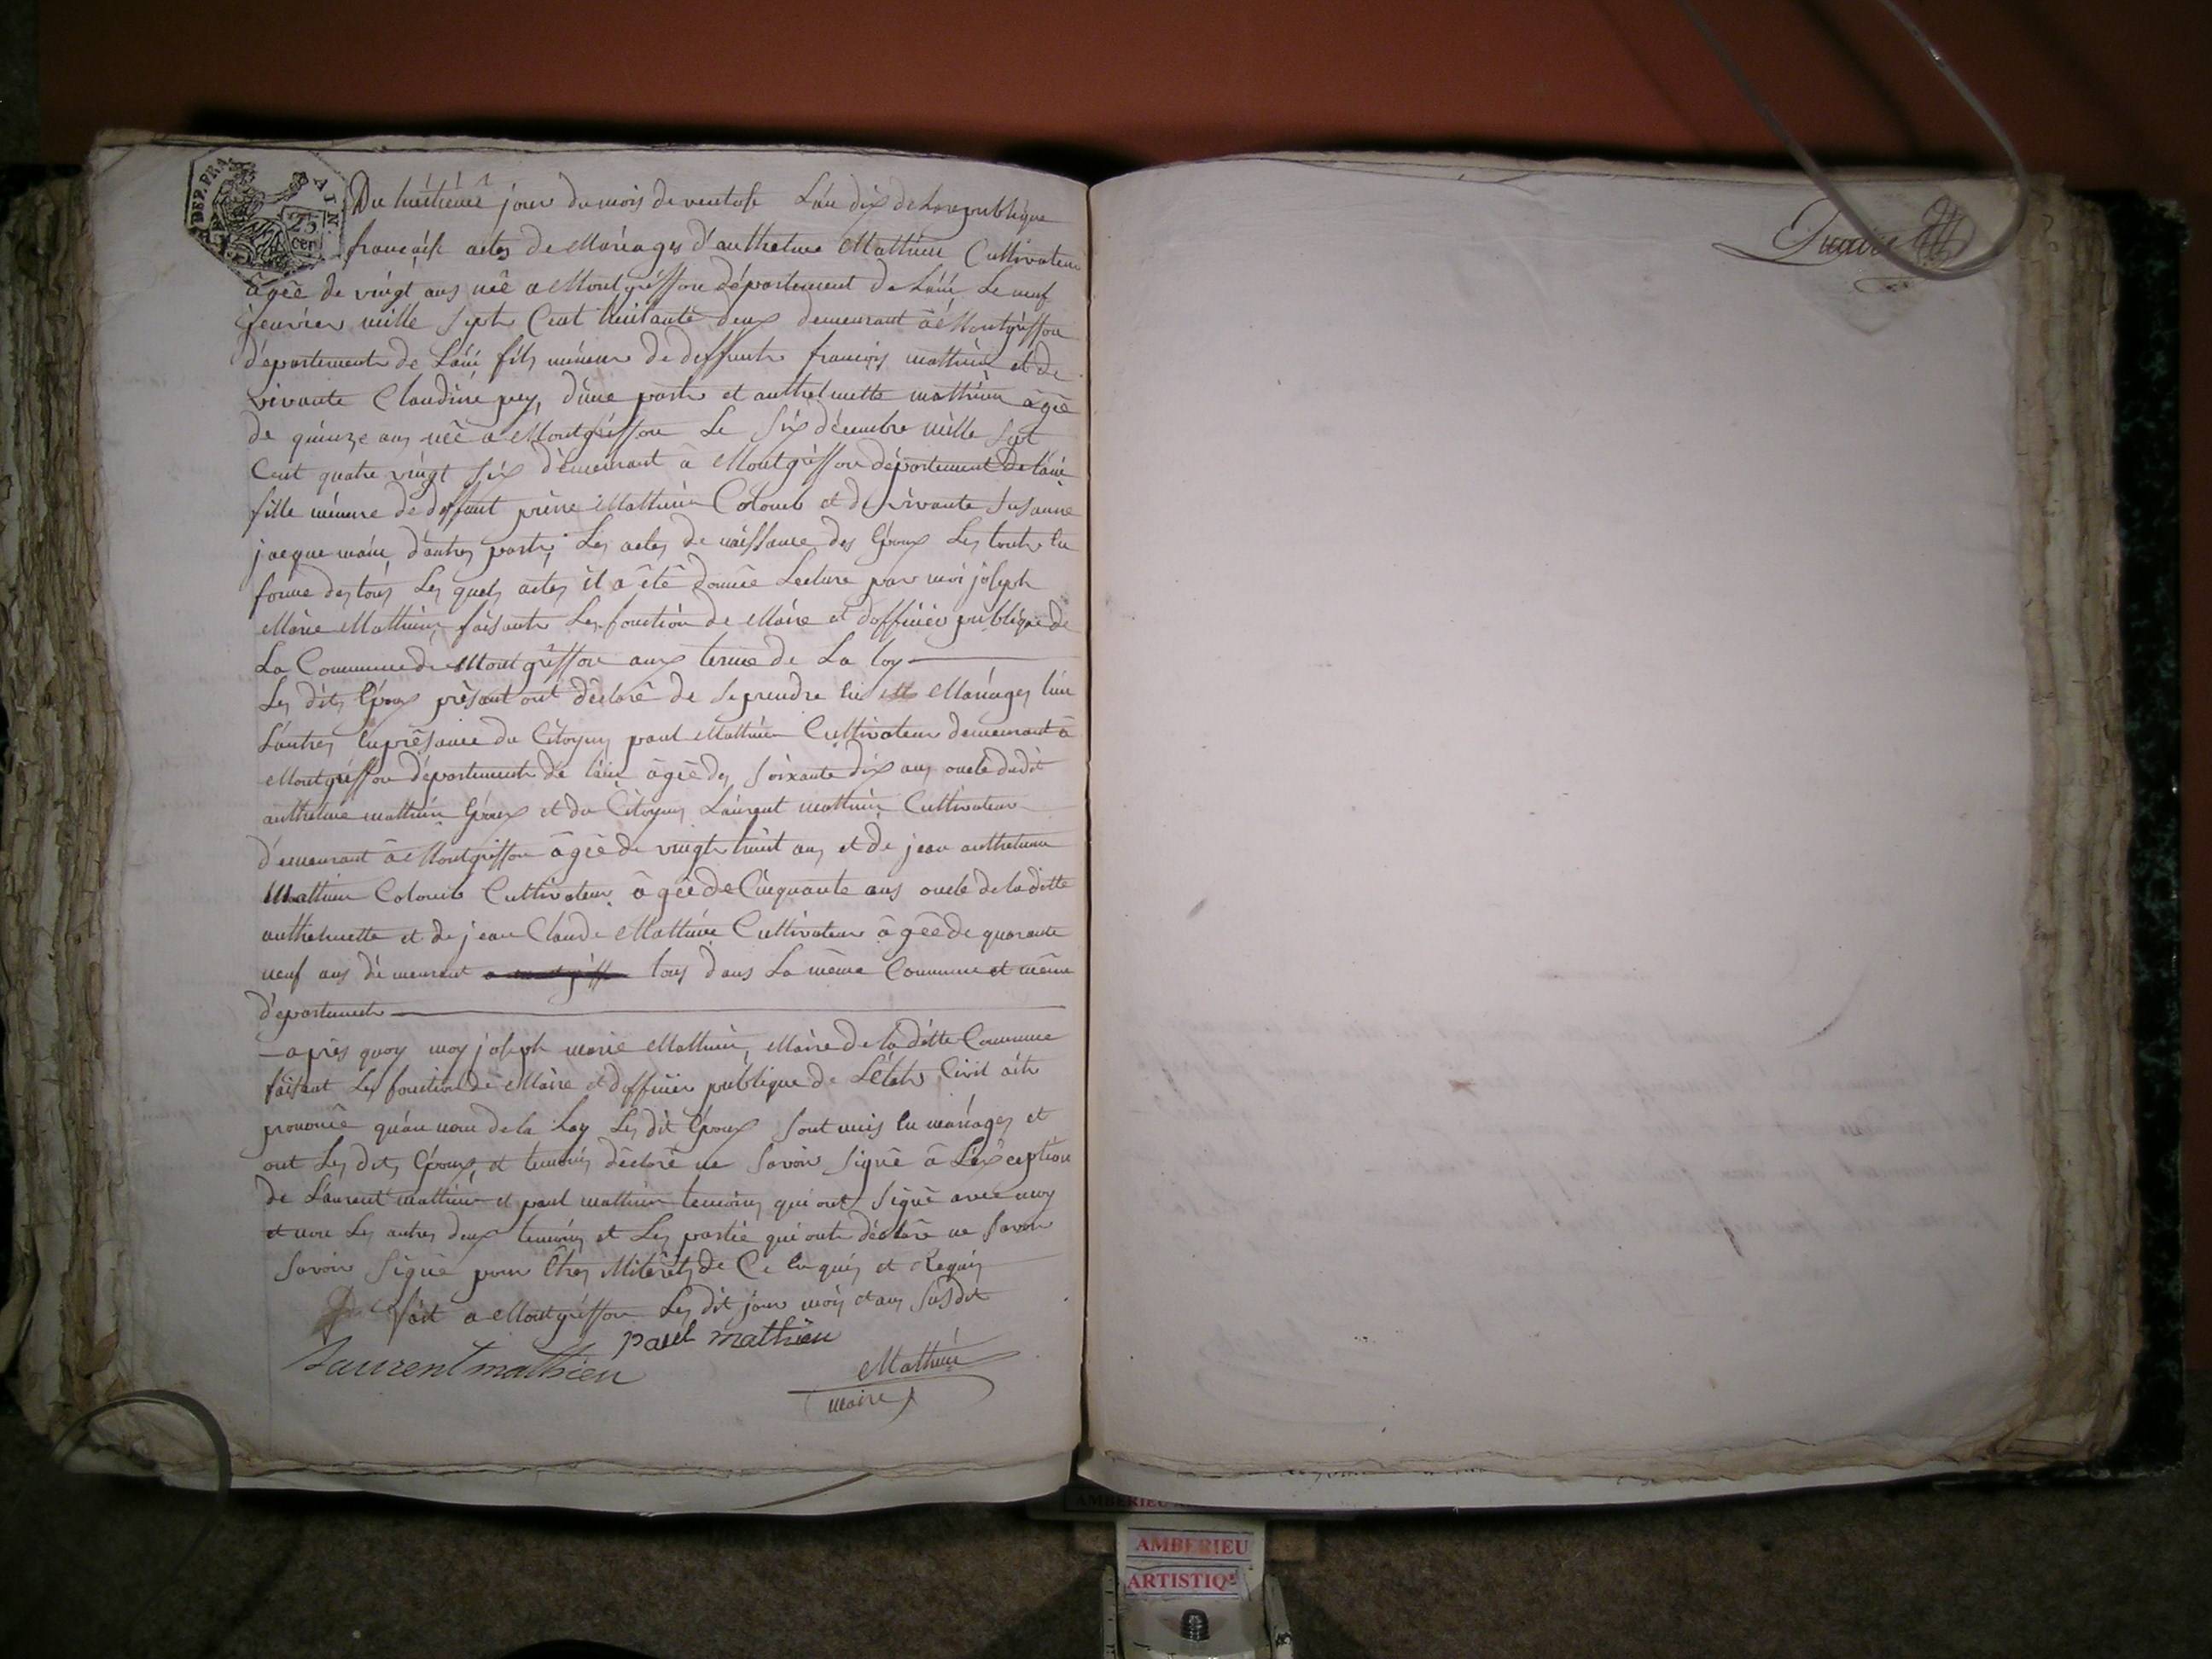 DEP. FRA.
AIN.
25
cen
Du huitieme jour du mois de ventose L'an dix de La republique
francaise actes de Mariages d'anthelme Mathieu Cultivateur
âgée de vingt ans née a Montgriffon département de L'ain Le neuf
fevrier mille sept Cent huitante deux demeurant â Montgriffon
département de L'ain fils mineur de deffunt françois mathieu et de
vivante Claudine pey, d'une parts et anthelmette mathieu âgée
de quinze ans née a Montgriffon Le Six décembre mille sept
Cent quatre vingt six demeurant a Montgriffon département De l'ain
fille mineure de deffunt pierre Mathieu Colomb et de vivante Susanne
jacquemain, d'autres parts, Les actes de naissance des Epoux Les touts en
forme des tous Les quels actes il a été donnée Lecture par moi joseph
Marie Mathieu faisants Les fonction de Maire et d'officier publique de
La Commune de Montgriffon aux terme de La loy
Les dits Epoux présant ont déclaré de se prendre en Mariages l'un
L'autres en présance du Citoyens paul Mathieu Cultivateur demeurant â
Montgriffon département de l'ain âgée des soixante dix ans oncle dudit
anthelme mathieu Epoux et du Citoyens Laurent mathieu Cultivateur
demeurant â Montgriffon âgée de vingt huit ans et de jean anthelme
Mathieu Colomb Cultivateur âgée de Cinquante ans oncle de la ditte
anthelmette et de jean Claude Mathieu Cultivateur âgée de quarante
neuf ans demeurant tous dans La même Commune et même
département
après quoy moy joseph marie Mathieu, Maire de la ditte Commune
faisant Les fonction de Maire et d'officier publique de L'états Civil aits
prononcé qu'au nom de la Loy Les dit Epoux sont unis en mariages et
ont Les dits Epoux et temoins déclaré ne savoir signé â L'exception
de Laurent mathieu et paul mathieu temoins qui ont signé avec moy
et non Les autres deux temoins et Les partie qui onts déclaré ne savoir
savoir signé pour de Ce enquis et Requis
fait a Montgriffon Les dit jour mois et ans susdit
paul mathieu
Laurent mathieu
Mathieu
maire
AMBERIEU
AMBERIEU
ARTISTIQ